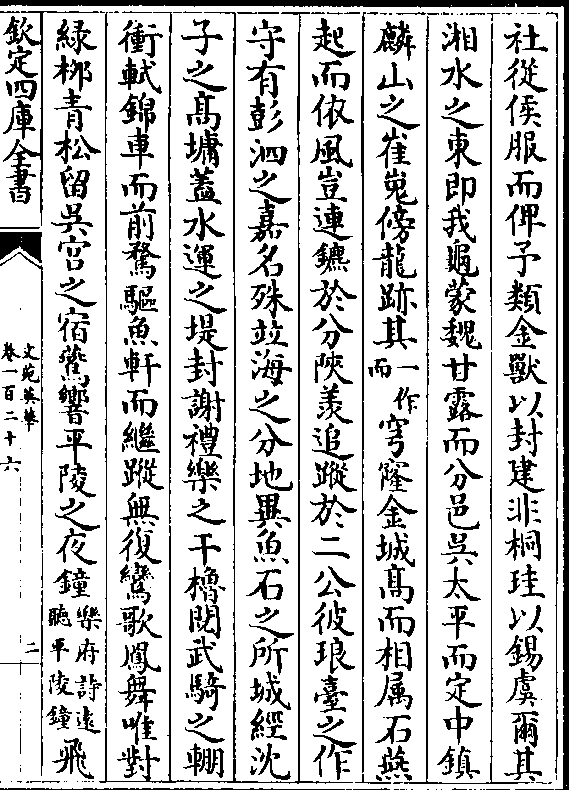 社從侯服而俾予類金獸以封建非桐珪以錫虞爾其
湘水之東即我龜蒙魏甘露而分邑吳太平而定中鎮
麟山之崔嵬傍龍跡其一作而穹窿金城髙而相属石燕
起而依風豈連鑣於分陜羨追蹤於二公彼琅臺之作
守有彭泗之嘉名殊竝海之分地異魚石之所城經沈
子之髙墉蓋水運之堤封謝禮樂之干櫓閲武騎之輣
衝軾錦車而前騖驅魚軒而繼蹤無復鸞歌鳳舞唯對
緑栁青松留吳宫之宿鷺響平陵之夜鐘樂府詩遠聽平陵鐘飛
欽定四庫全書
文苑英華
卷一百二十六
二